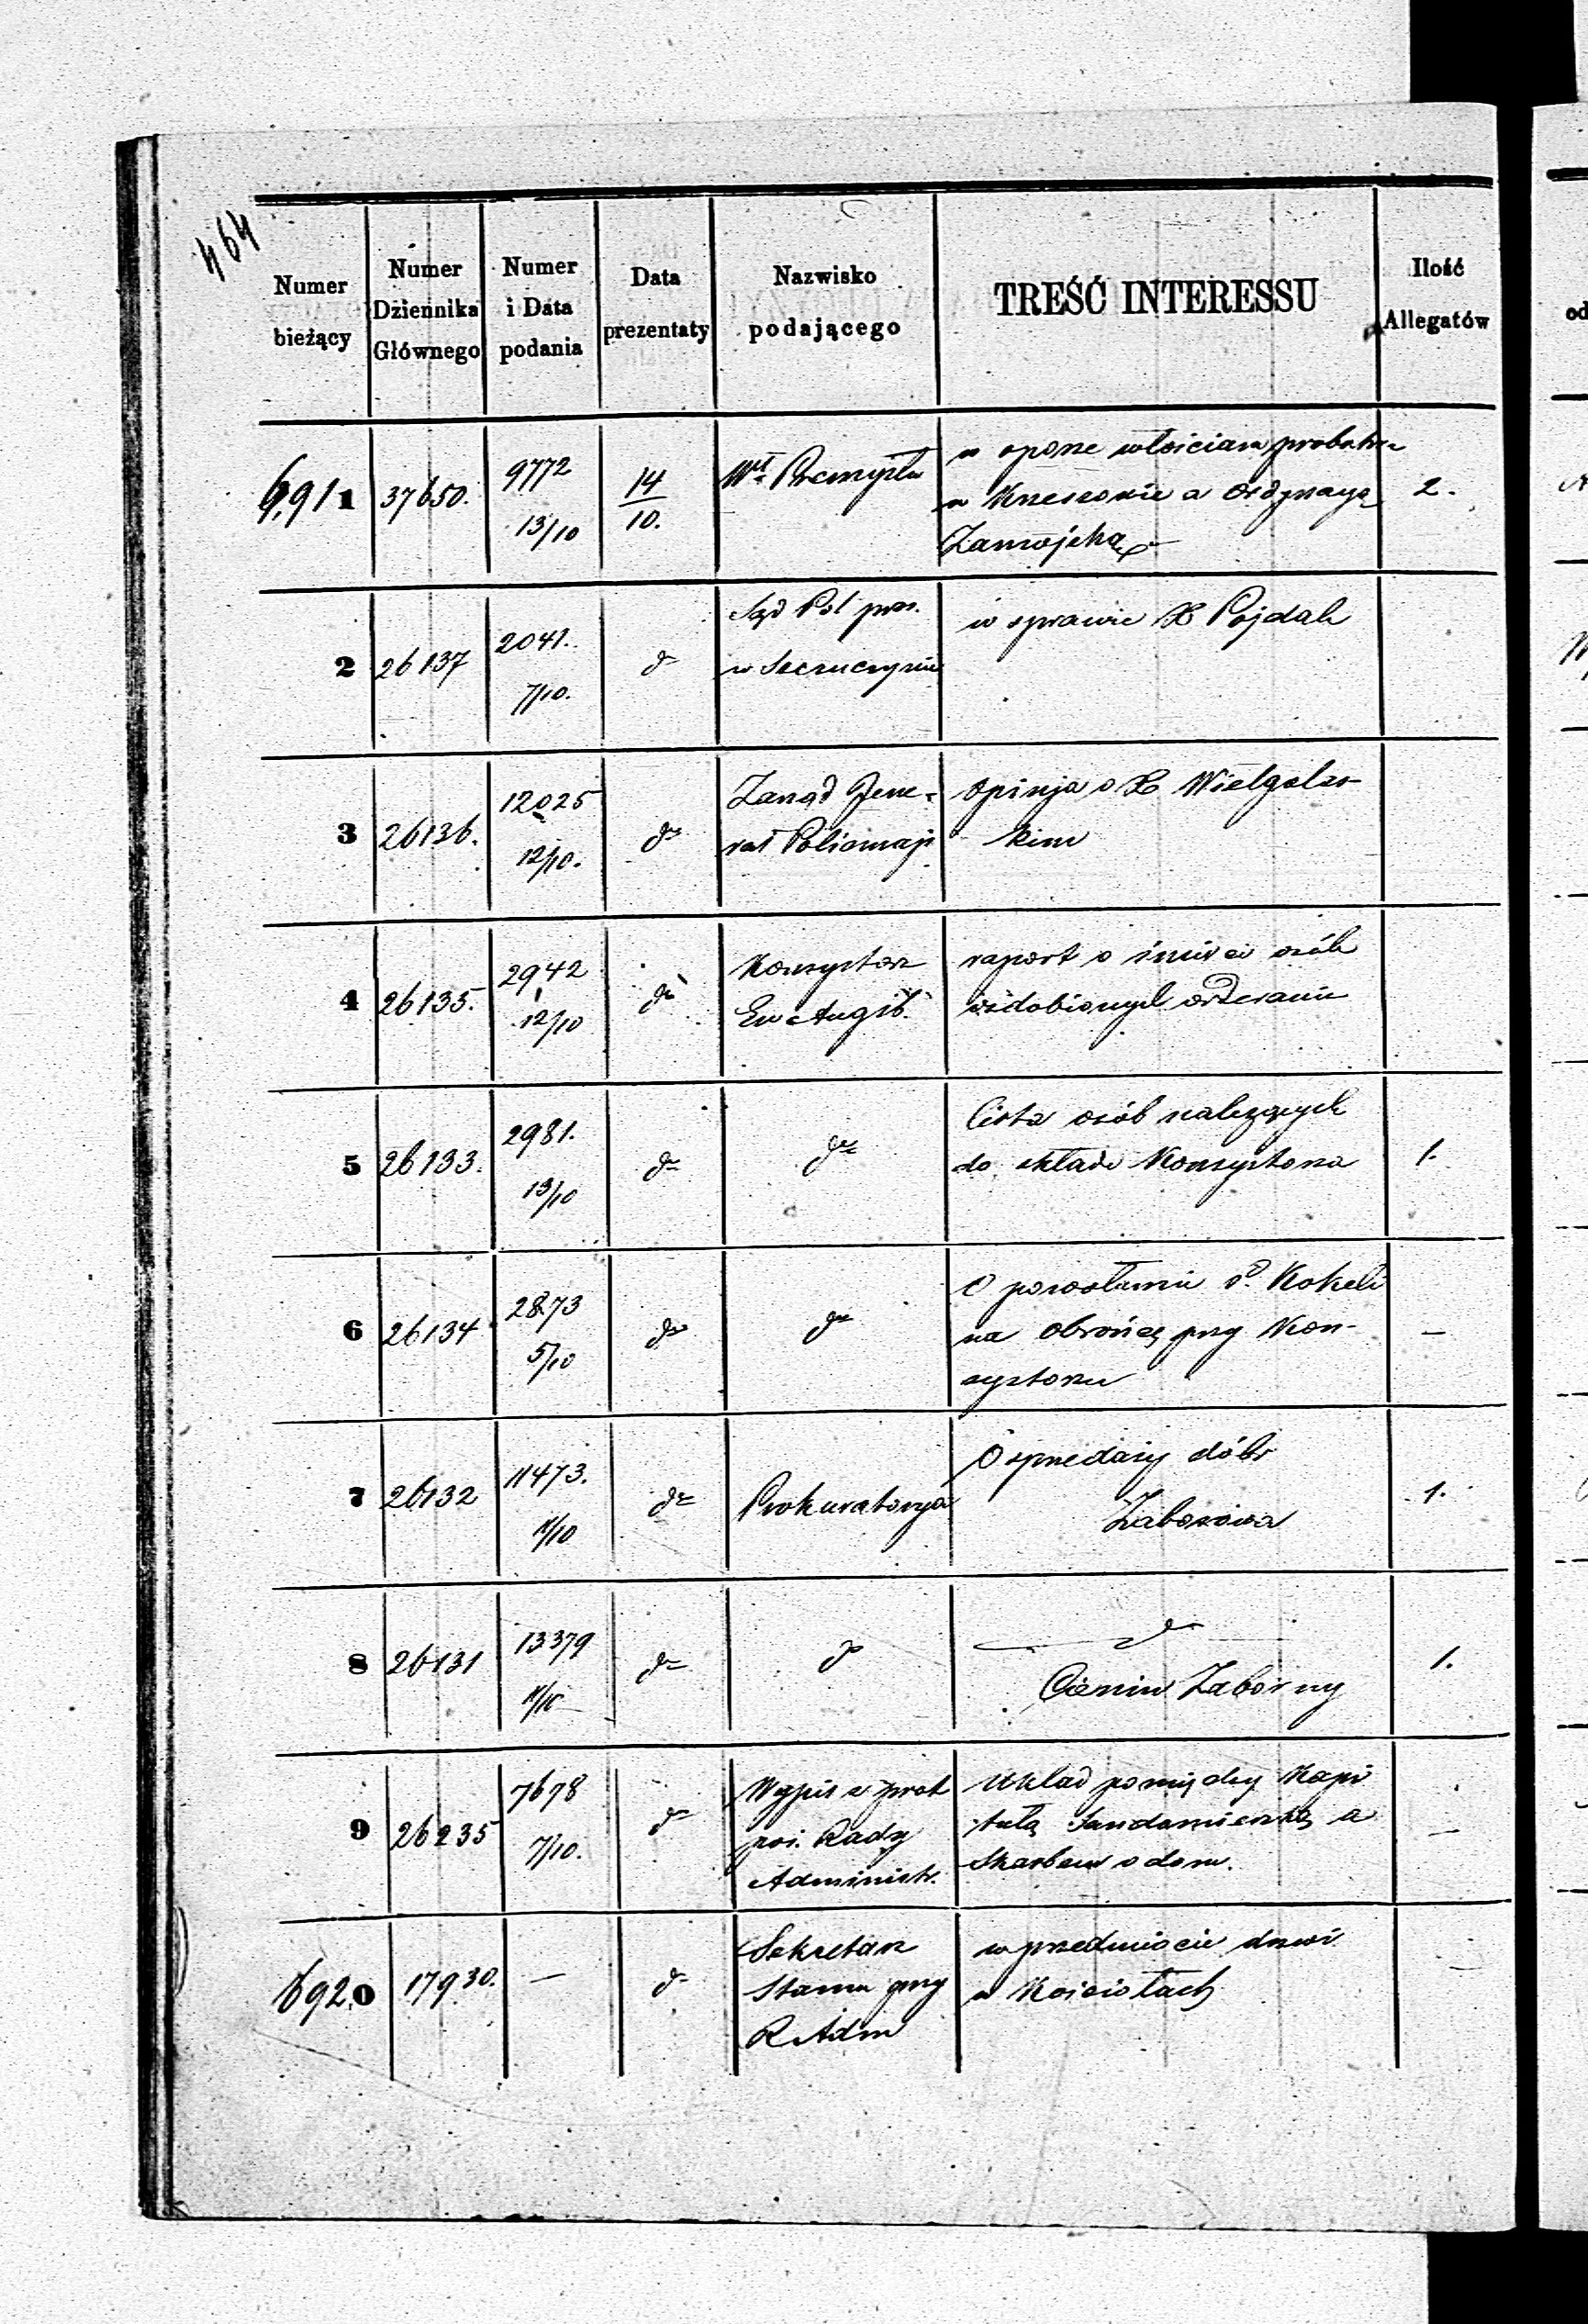 464
Numer bieżący
Numer Dziennika Głównego
Numer i Data podania
Data prezentaty
Nazwisko podającego
TREŚĆ INTERESSU
Ilość Allegatów
6,911 37650. 9772 13/10 14/10. Wł. Przemysłu
w sporze włościan probostwa
w Krzeszowie a Ordynacyą
Zamojską
2.
2 26137 2041. 7/10. do
Sąd Pol pop.
w Szczuczynie
w sprawie X Pojdak
3 26136. 12025 12/10. do
Zarząd Jene-
rał Policmajs
Opinja o X Wielgolas-
kim
4 26135. 2942 12/10 do
Konsystorz
Ew Augsb.
raport o śmierci osób
ozdobionych orderami
5 26133. 2981. 13/10 do do
Lista osób należących
do składu Konsystorza
1.
6 26134 2873 5/10 do do
O powołaniu P. Kokeli
na obrońcę przy Kon-
systorzu
—
7 26132 11473. 11/10 do Prokuratorya
O sprzedaży dóbr
Zaborowa
1.
8 26131 13379 11/10 do do
do
Cienin Zaborny
1.
9 26235 7678 7/10. do
Wypis z prot
pos. Rady
Administr.
Układ pomiędzy Kapi
tułą Sandomierską a
Skarbem o dom.
—
6920 17930. — do
Sekretarz
Stanu przy
R Adm
w przedmiocie drzwi
w Kościołach